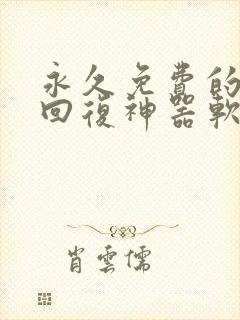 永久免費的
回復神器軟
肖雲儒